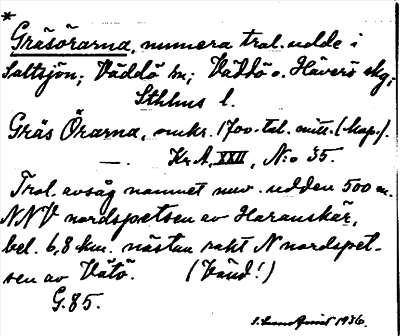 *
Gräsörarna, numera trol. udde i
Saltsjön; Väddö sn; Väddö o. Häverö skg;
Sthlms l.
Gräs Örarna, omkr. 1700-tal. mitt. (kap.).
— . Kr A, XXII, N:o 35.
Trol. avsåg namnet nuv. udden 500 m.
NNV nordspetsen av Haranskär,
bel. 6,8 km. nästan rakt N nordspet-
sen av Vätö. (Vänd!)
G. 85.
1936.